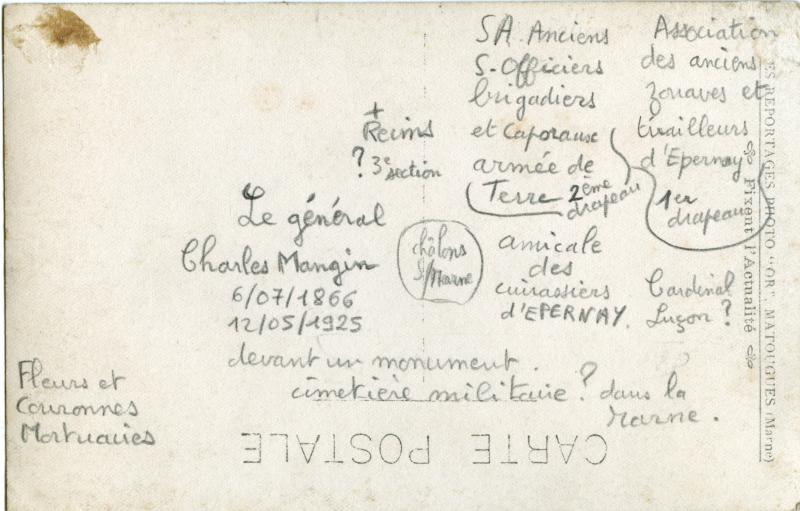 SA Anciens
S-Officiers
brigadiers
et Caporaux
armée de
Terre 2ème
drapeau
Association
des anciens
zouaves et
tirailleurs
d'Epernay
1er
drapeau
+
Reims
? 3e section
Le général
Charles Mangin
6/07/1866
12/05/1925
châlons
S/Marne
amicale
des
cuirassiers
d'EPERNAY.
Cardinal
Luçon ?
devant un monument.
cimetière militaire ? dans la
Marne.
Fleurs et
Couronnes
Mortuaires
CARTE POSTALE
ES REPORTAGES PHOTO "OR", MATOUGUES (Marne)
Fixent l'Actualité